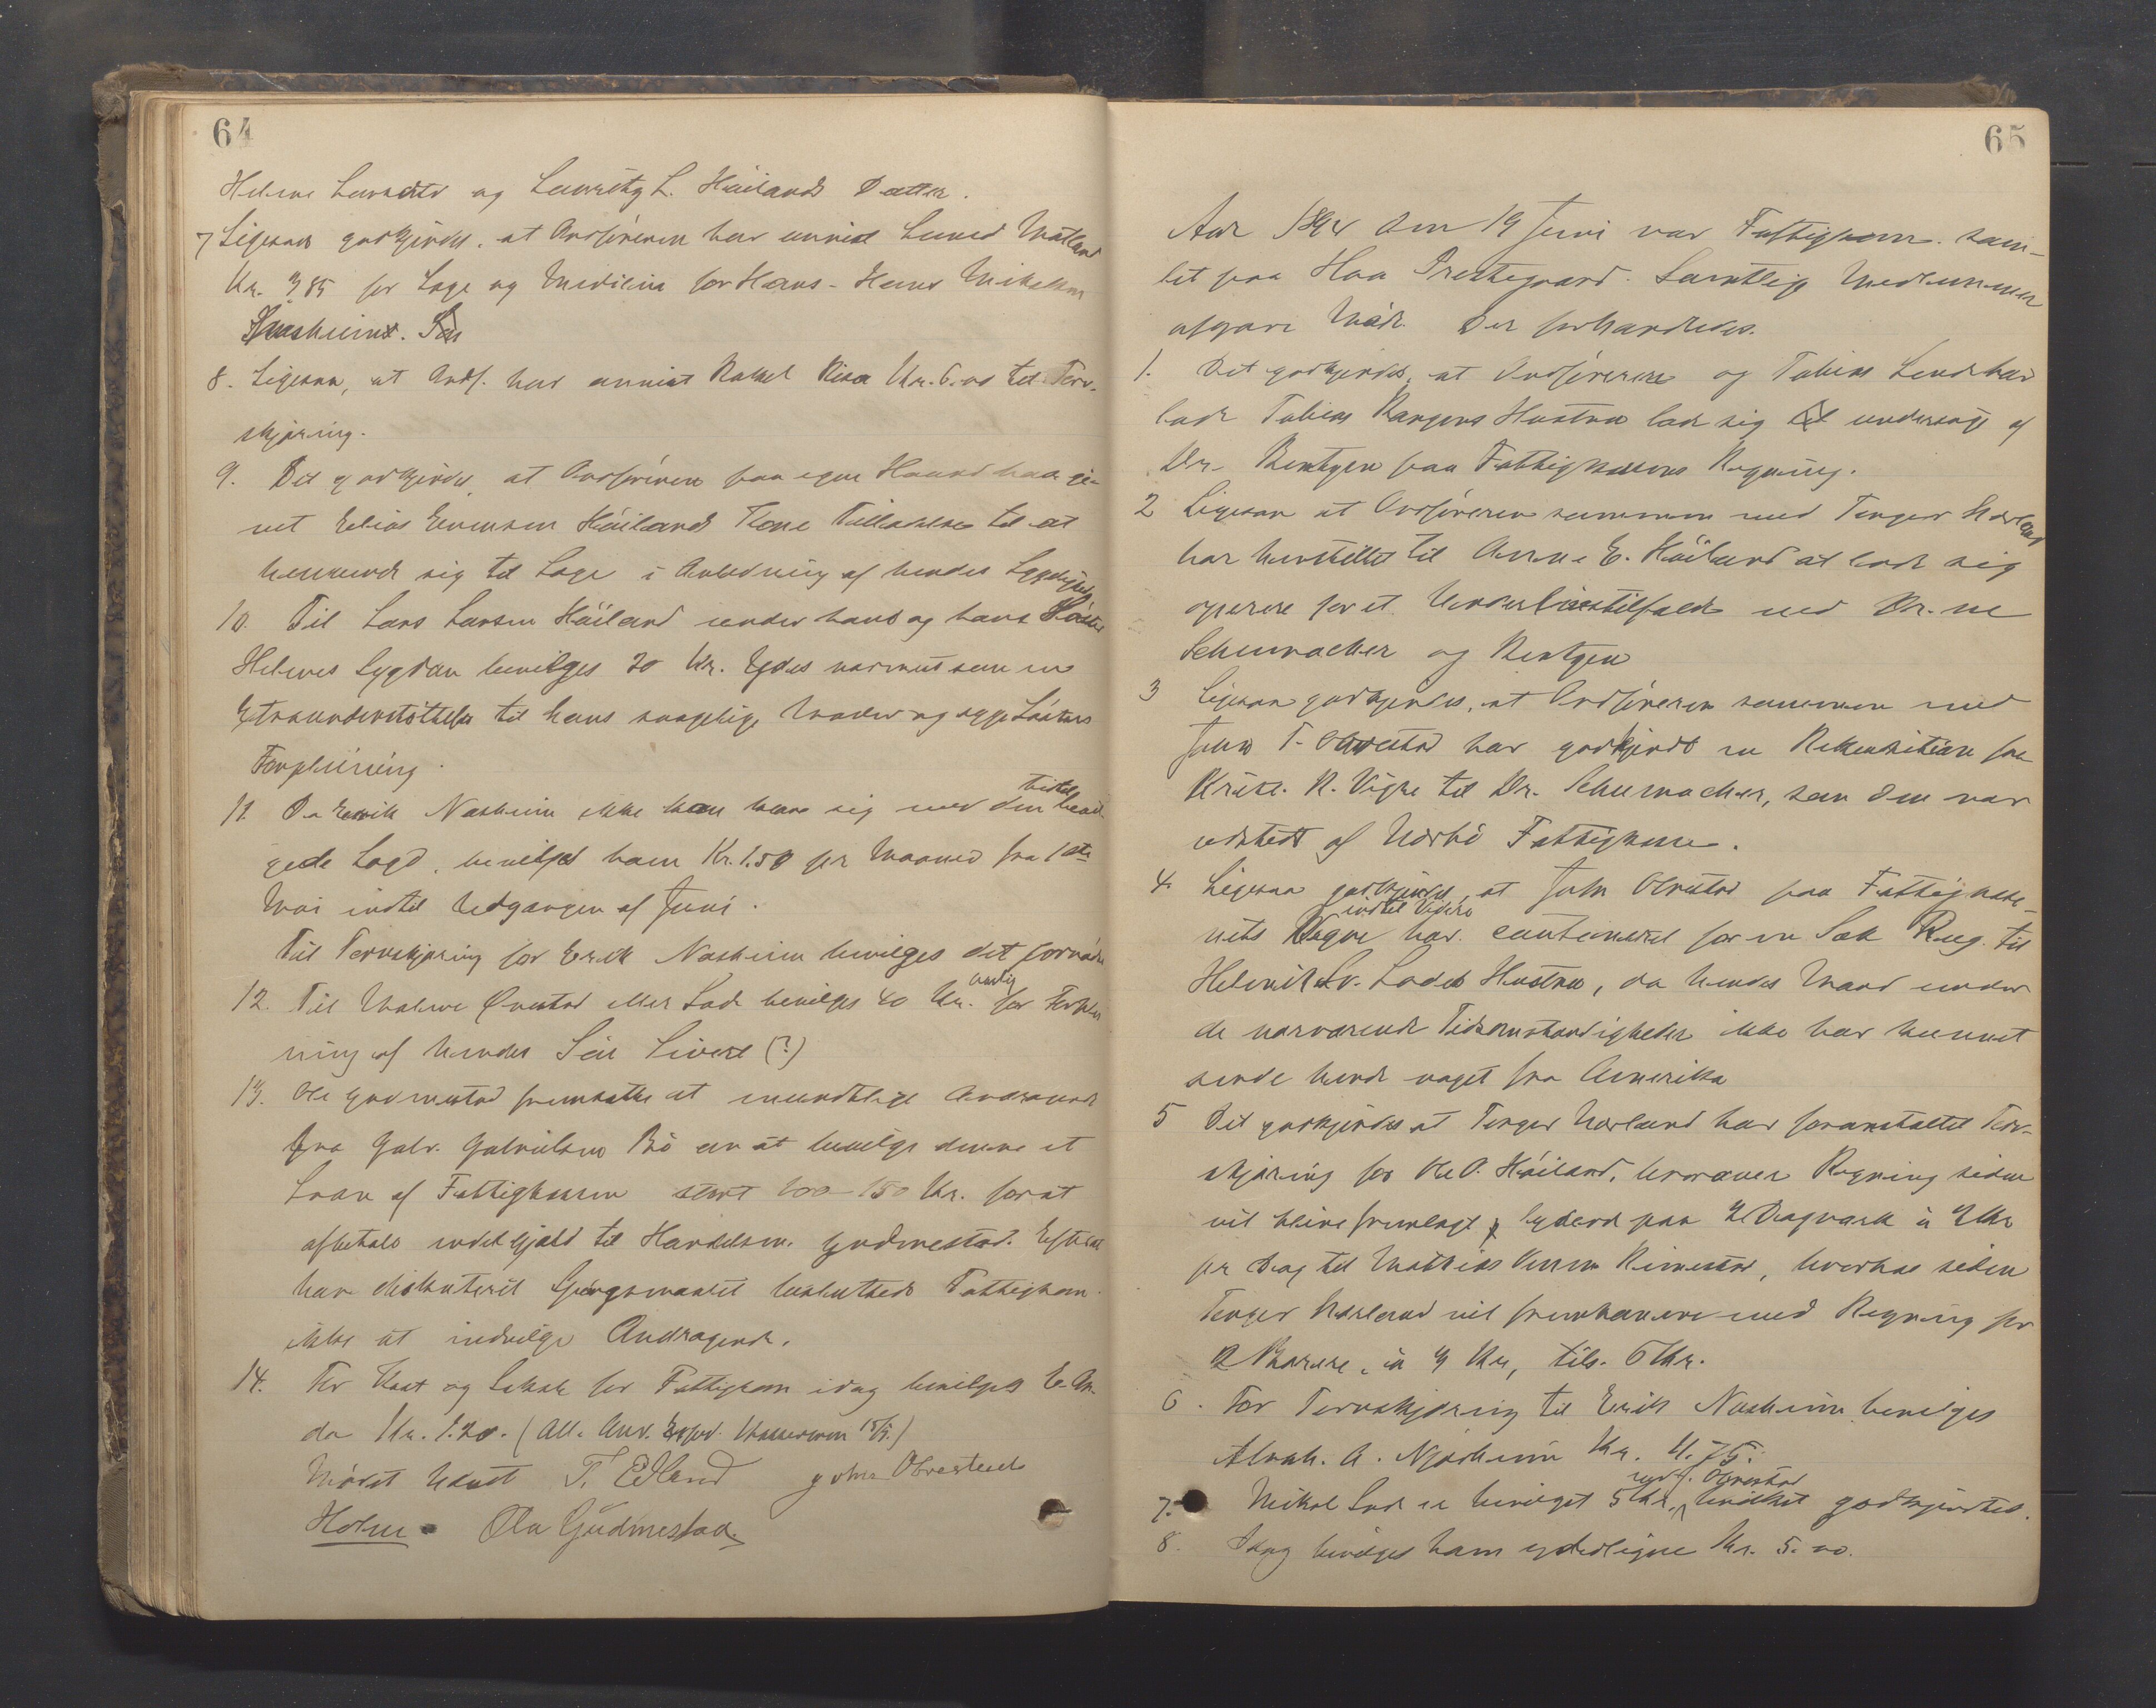 64
Helene Larsdtr og Lauritz L. Höilands Datter.
7 Ligesaa godkjendes, at Ordføreren har anvist Lensmd Matland
Kr. 3,85 for Læge og Medicin for Hans - Hans Mikalsen
Nærheims. Søn
8. Ligesaa, at Ordf. har anvist Rakel Risa Kr. 6.00 til Torv-
skjæring.
9. Det godkjendes, at Ordføreren paa egen Haand har gi-
vet Elias Evensen Höilands Kone Tilladelse til at
henvende sig til Læge i Anledning af hendes Sygdom
10. Til Lars Larsen Höiland under hans og hans Søster
Helenes Sygdom bevilges 20 Kr. Ydes nærmest som en
Extraunderstöttelse til hans svagelige Moder og syge Søsters
Forpleining.
11. Da Erik Nærheim ikke kan klare sig med den tidl. bevil-
gede Lægd, bevilges ham Kr. 1.50 pr Maaned fra 1ste
Mai indtil Udgangen af Juni.
Til Torvskjæring for Erik Nærheim bevilges det fornødne
12. Til Malene Øvestad eller Lode bevilges 40 Kr. aarlig for Forplei-
ning af hendes Søn Sivert (?)
13. Ole Gudmestad fremsatte et mundtlige Andragende
fra Gabr. Gabrielsen Bö om at bevilge denne et
Laan af Fattigkassen stort 100-150 Kr. for at
afbetale endel Gjæld til Handelsm. Gudmestad. Efter at
have diskuteret Spörgsmaalet besluttede Fattigkom.
ikke at indvilge Andragende.
14. For Kost og Lokale for Fattigkom. idag bevilges E. An-
da Kr. 1.20. (All. Anv. Kassereren 15/5.)
Mödet hævet T. Edland John Obrestad
Holm Ola Gudmestad
65
Aar 1894 den 19 Juni var Fattigkom. sam-
let paa Haa Prestegaard. Samtlige Medlemmer
afgave Möde. Der forhandledes.
1. Det godkjendes, at Ordføreren og Tobias Lende har
ladt Tobias Vangens Hustru lade sig undersøge af
Dr. Bentzen paa Fattigkassens Regning.
2 Ligesaa at Ordføreren sammen med Torger Hærland
har henstillet til Anna E. Höiland at lade sig
operere for et Underlivstilfælde ved Dr.ne
Schumacher og Bentzen
3 Ligesaa godkjendes, at Ordføreren sammen med
John T. Obrestad har godkjendt en Rekvisition for
Krist. R. Vigre til Dr. Schumacher, som den var
udstedt af Nærbö Fattigkom.
4. Ligesaa godkjendes, at John Obrestad paa Fattigvæse-
nets Vegne indtil Videre har cautioneret for en Sæk Rug til
Helmik Sv. Lodes Hustru, da hendes Mand under
de nærværende Tidsomstændigheder ikke har kunnet
sende hende noget fra Amerika
5 Det godkjendes at Torger Hærland har foranstaltet Torv-
skjæring for Ole O. Höiland, hvorover Regning siden
vil blive fremlagt, lydend paa 2 Dagværk à 2 Kr
pr Dag til Mathias Rimestad, hvorhos siden
Torger Hærland vil fremkomme med Regning for
2 Bærere, à 3 Kr, tils. 6 Kr.
6. For Torvskjæring til Erik Nærheim bevilges
Abrah. A. Njærheim Kr. 4.75.
7. Mikal Lode er bevilget 5 Kr. ved J. Obrestad hvilket godkjendtes.
8. Idag bevilges ham yderligere Kr. 5.00.